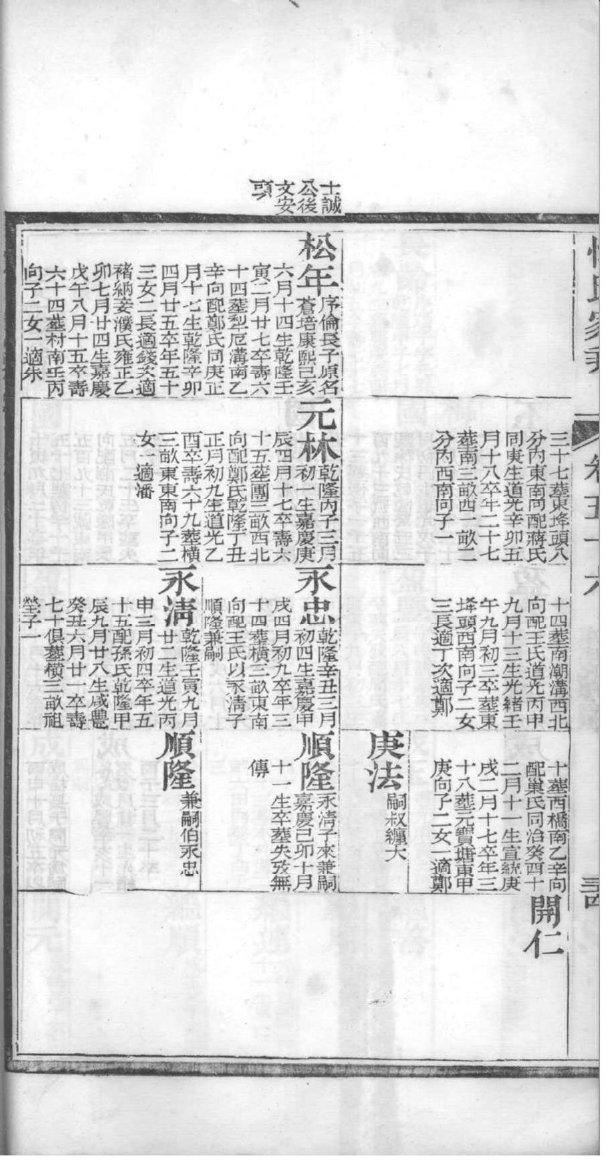 卷五十六
十誠
公後
文安
頭
松年
序倫長子原名
蒼培康熙己亥
六月十四生乾隆壬
寅二月廿七卒壽六
十四葬犁厄溝南乙
辛向配鄭氏同庚正
月十七生乾隆辛卯
四月廿五卒年五十
三女二長適錢次適
褚納妾濮氏雍正乙
卯七月廿四生嘉慶
戊午八月十五卒壽
六十四葬村南壬丙
向子二女一適朱
三十七葬東垰頭八
分内東南向配蔣氏
同庚生道光辛卯五
月十八卒年二十七
葬南三畝四一畝二
分内西南向子一
元林
乾隆丙子三月
初一生嘉慶庚
辰四月十七卒壽六
十五葬團三畝西北
向配鄭氏乾隆丁丑
正月初九生道光乙
酉卒壽六十九葬橫
三畝東東南向子二
女一適潘
十四葬南潮溝西北
向配王氏道光丙申
九月十三生光緒壬
午九月初三卒葬東
垰頭西南向子二女
三長適丁次適鄭
永忠
乾隆辛丑三月
初四生嘉慶甲
戌四月初九卒年三
十四葬橫三畝東南
向配王氏以永清子
順隆兼嗣
永清
乾隆壬寅九月
廿二生道光丙
申三月初四卒年五
十五配孫氏乾隆甲
辰九月廿八生咸豐
癸丑六月廿 卒壽
七十俱葬橫三畝祖
塋子一
十葬西橋南乙辛向
配巢氏同治癸酉十
二月十一生宣統庚
戌二月十七卒年三
十八葬元寶塘東甲
庚向子二女一適鄭
庚法
嗣叔纏大
順隆
永清子來兼嗣
嘉慶己卯十月
十一生卒葬失攷無
傳
順隆
兼嗣伯永忠
開仁